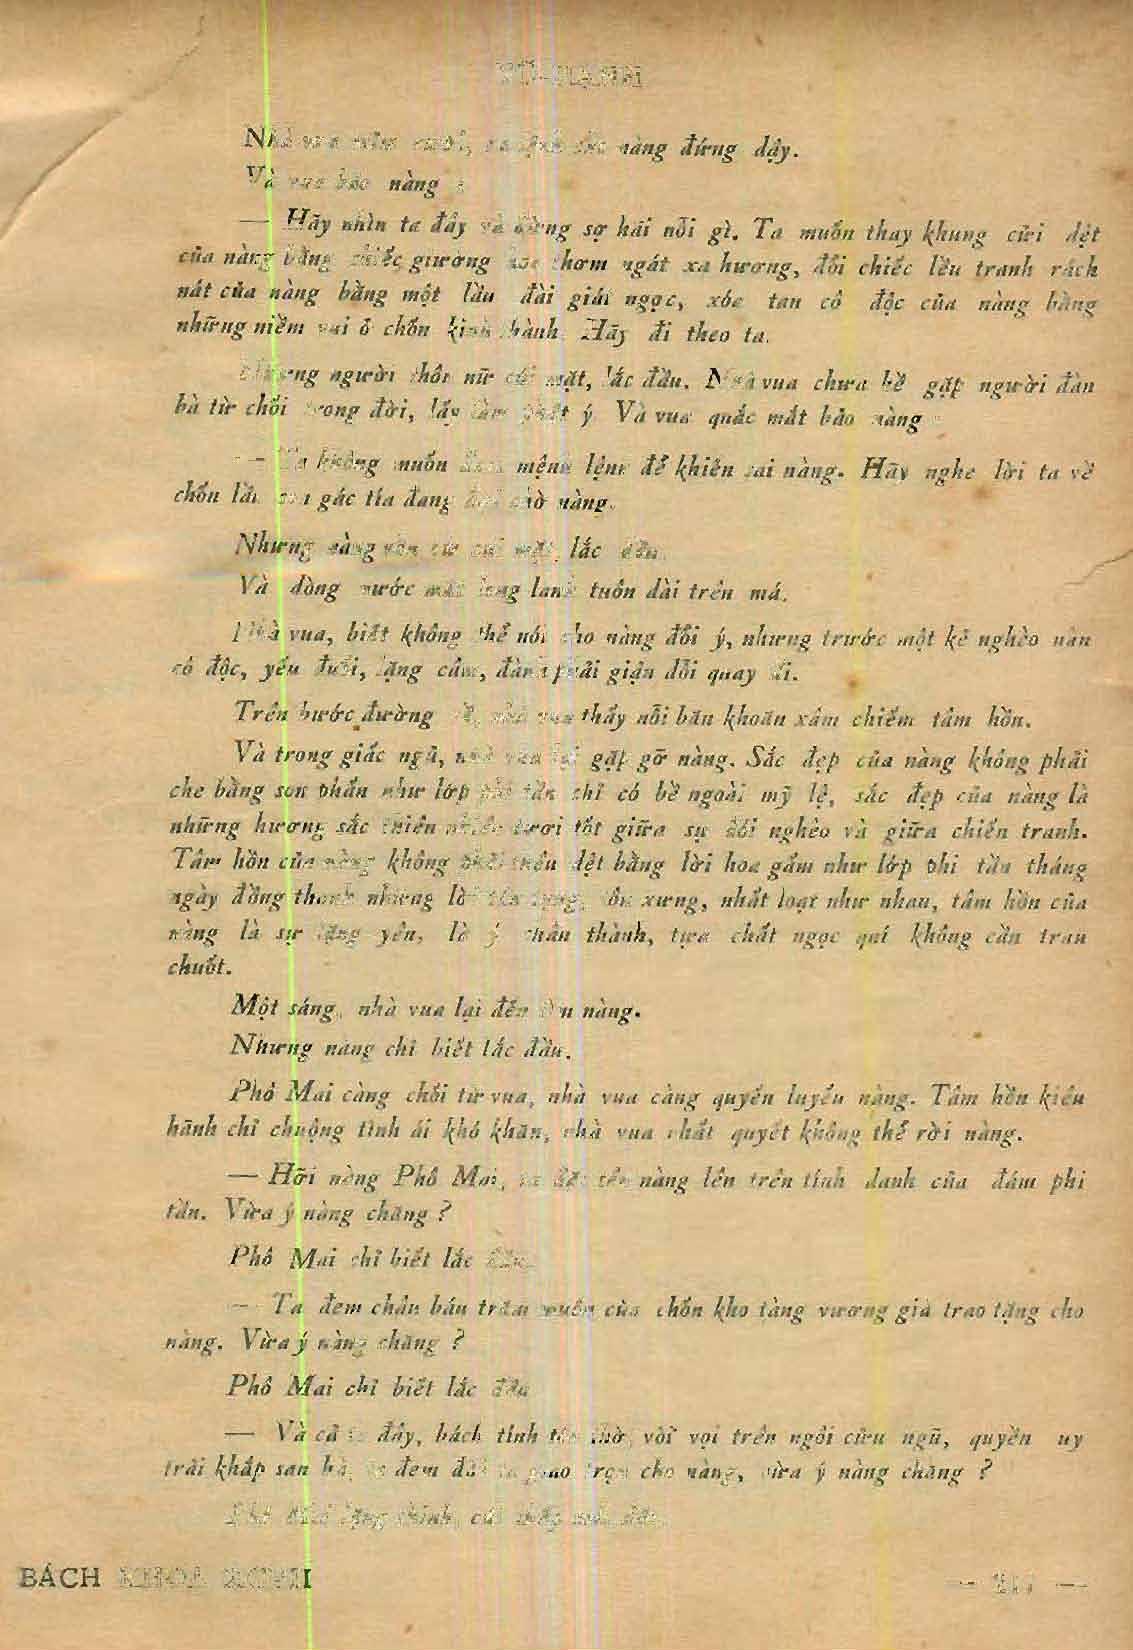 VŨ-HẠNH
Nhà vua mỉm cười, ra lệnh cho nàng đứng dậy.
Và vua bảo nàng :
— Hãy nhìn ta đây và đừng sợ hãi nỗi gì. Ta muốn thay khung cửi dệt
của nàng bằng chiếc giường hoa thơm ngát xạ hương, đổi chiếc lều tranh rách
nát của nàng bằng một lầu đài giát ngọc, xóa tan cô độc của nàng bằng
những niềm vui ở chốn kinh thành. Hãy đi theo ta.
Nhưng người thôn nữ cúi mặt, lắc đầu. Nhà vua chưa hề gặp người đàn
bà từ chối trong đời, lấy làm phật ý. Và vua quắc mắt bảo nàng :
— Ta không muốn đem mệnh lệnh để khiến sai nàng. Hãy nghe lời ta về
chốn lầu son gác tía đang đợi chờ nàng.
Nhưng nàng vẫn cứ cúi mặt, lắc đầu.
Và dòng nước mắt long lanh tuôn dài trên má.
Nhà vua, biết không thể nói cho nàng đổi ý, nhưng trước một kẻ nghèo nàn
cô độc, yếu đuối, lặng câm, đành phải giận dỗi quay đi.
Trên bước đường về, nhà vua thấy nỗi băn khoăn xâm chiếm tâm hồn.
Và trong giấc ngủ, nhà vua lại gặp gỡ nàng. Sắc đẹp của nàng không phải
che bằng son phấn như lớp phi tần chỉ có bề ngoài mỹ lệ, sắc đẹp của nàng là
những hương sắc thiên nhiên tươi tốt giữa sự đói nghèo và giữa chiến tranh.
Tâm hồn của nàng không phải thêu dệt bằng lời hoa gấm như lớp phi tần tháng
ngày đồng thanh những lời tán tụng, tôn xưng, nhất loạt như nhau, tâm hồn của
nàng là sự lặng yên, là ý chân thành, tựa chất ngọc quí không cần trau
chuốt.
Một sáng, nhà vua lại đến tìm nàng.
Nhưng nàng chỉ biết lắc đầu.
Phô Mai càng chối từ vua, nhà vua càng quyến luyến nàng. Tâm hồn kiêu
hãnh chỉ chuộng tình ái khó khăn, nhà vua nhất quyết không thể rời nàng.
— Hỡi nàng Phô Mai, ta đặt tên nàng lên trên tính danh của đám phi
tần. Vừa ý nàng chăng ?
Phô Mai chỉ biết lắc đầu.
— Ta đem châu báu trăm muôn của chốn kho tàng vương giả trao tặng cho
nàng. Vừa ý nàng chăng ?
Phô Mai chỉ biết lắc đầu
— Và cả ta đây, bách tính tôn thờ, vòi vọi trên ngôi cửu ngũ, quyền uy
trải khắp san hà, ta đem đời ta giao trọn cho nàng, vừa ý nàng chăng ?
Phô Mai lặng thinh, cúi thấp mái đầu.
BÁCH KHOA